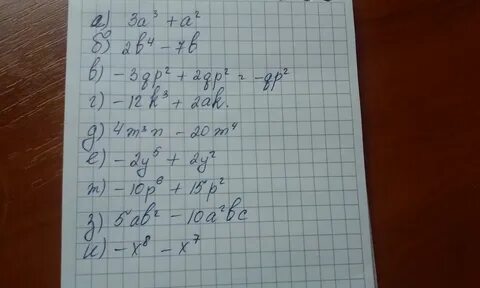 а) 3a³ + a²
б) 2b⁴ - 7b
в) -3qp² + 2qp² = -qp²
г) -12k³ + 2ak.
д) 4m³n - 20m⁴
е) -2y⁵ + 2y²
ж) -10p⁶ + 15p²
з) 5ab² - 10a²bc
и) -x⁸ - x⁷